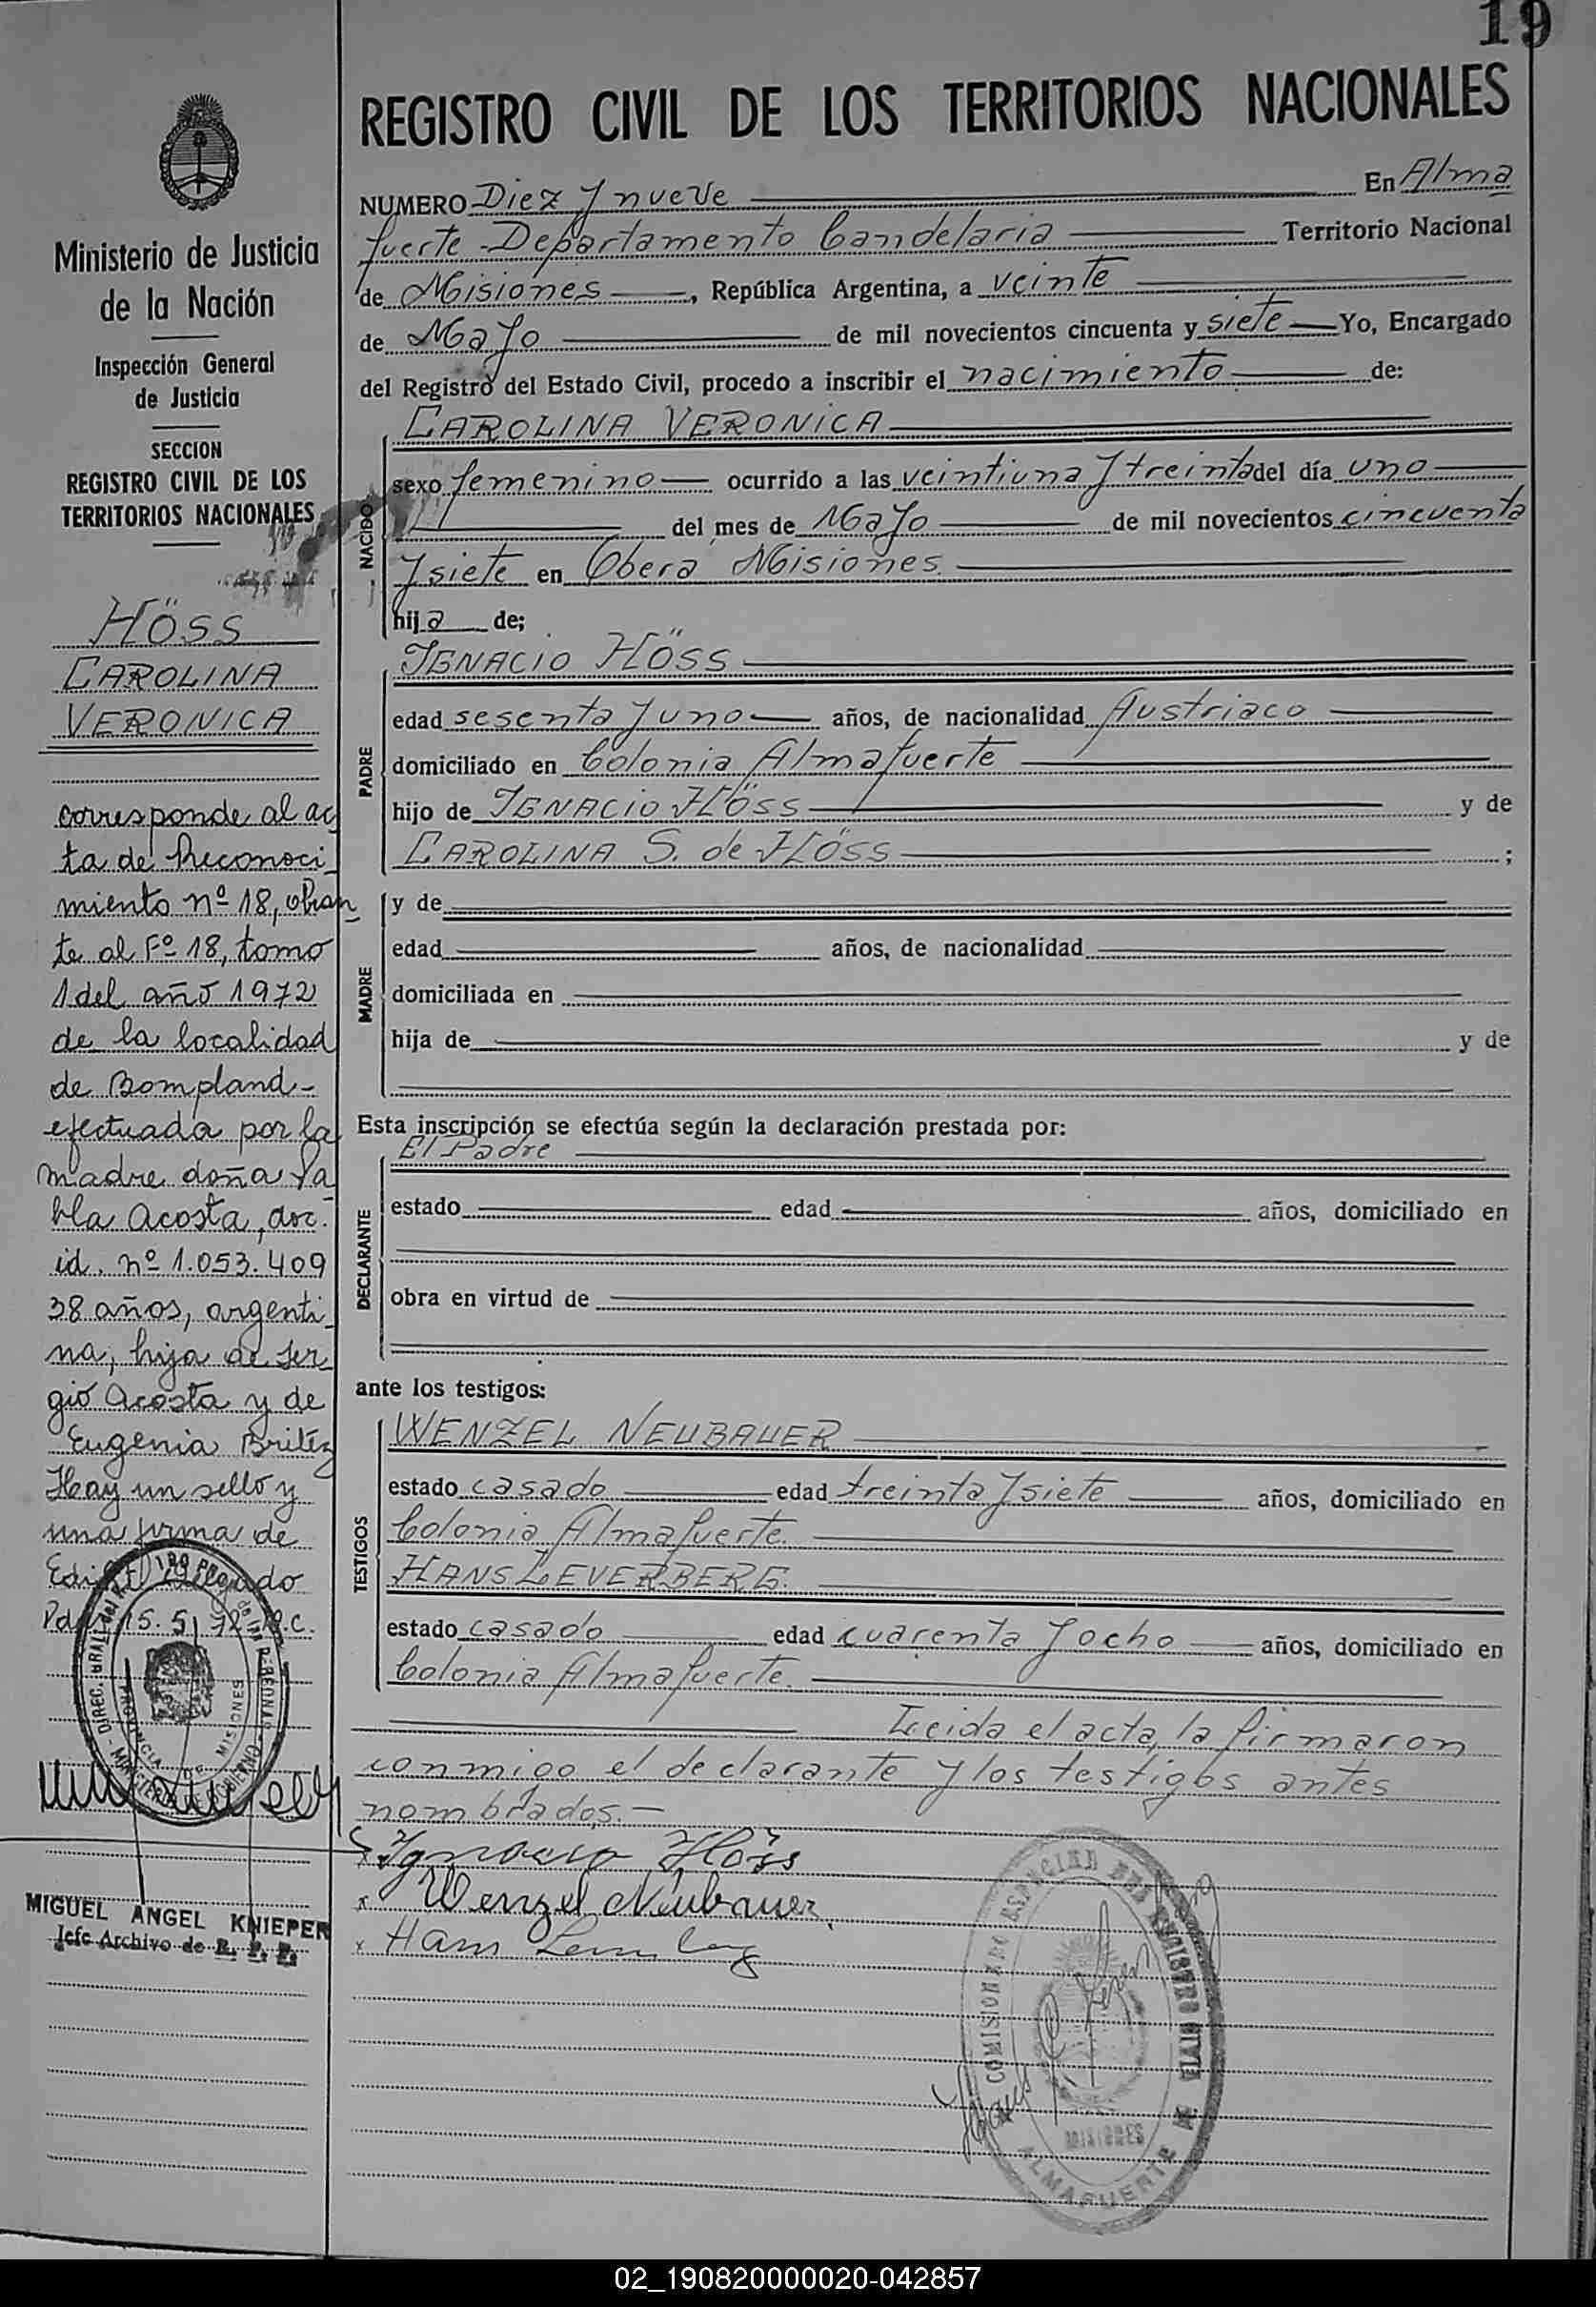 19
REGISTRO CIVIL DE LOS TERRITORIOS NACIONALES
NUMERO Diez y nueve En Alma
fuerte - Departamento Candelaria Territorio Nacional
de Misiones, República Argentina, a veinte
de Mayo de mil novecientos cincuenta y siete Yo, Encargado
del Registro del Estado Civil, procedo a inscribir el nacimiento de:
NACIDO
CAROLINA VERONICA
sexo femenino ocurrido a las veintiuna y treinta del día uno
del mes de Mayo de mil novecientos cincuenta
y siete en Obera Misiones.
hija de;
PADRE
IGNACIO HÖSS
edad sesenta y uno años, de nacionalidad Austriaco
domiciliado en Colonia Almafuerte
hijo de IGNACIO HÖSS y de
CAROLINA S. de HÖSS ;
MADRE
y de
edad años, de nacionalidad
domiciliada en
hija de y de
Esta inscripción se efectúa según la declaración prestada por:
DECLARANTE
El Padre
estado edad años, domiciliado en
obra en virtud de
ante los testigos:
TESTIGOS
WENZEL NEUBAUER
estado casado edad treinta y siete años, domiciliado en
Colonia Almafuerte.
HANS LEVERBERG.
estado casado edad cuarenta y ocho años, domiciliado en
Colonia Almafuerte.
Leida el acta, la firmaron
conmigo el declarante y los testigos antes
nombrados.-
x Ignacio Höss
x Wenzel Neubauer.
x Hans
COMISIONADO ESPECIAL DEL REGISTRO CIVIL
MISIONES
ALMAFUERTE
Ministerio de Justicia
de la Nación
Inspección General
de Justicia
SECCION
REGISTRO CIVIL DE LOS
TERRITORIOS NACIONALES
HÖSS
CAROLINA
VERONICA
corresponde al ac
ta de Reconoci
miento nº 18, obran
te al Fº 18, tomo
1 del año 1972
de la localidad
de Bompland-
efectuada por la
madre doña Pa
bla Acosta, doc.
id. nº 1.053.409
38 años, argenti
na, hija de Ser
gio Acosta y de
Eugenia Britéz
Hay un sello y
una firma de
Delgado
15.5.72
DIREC. GRAL. DEL
PROVINCIA DE MISIONES
MINISTERIO DE GOBIERNO
MIGUEL ANGEL KNIEPER
Jefe Archivo de R. P. P.
02_190820000020-042857